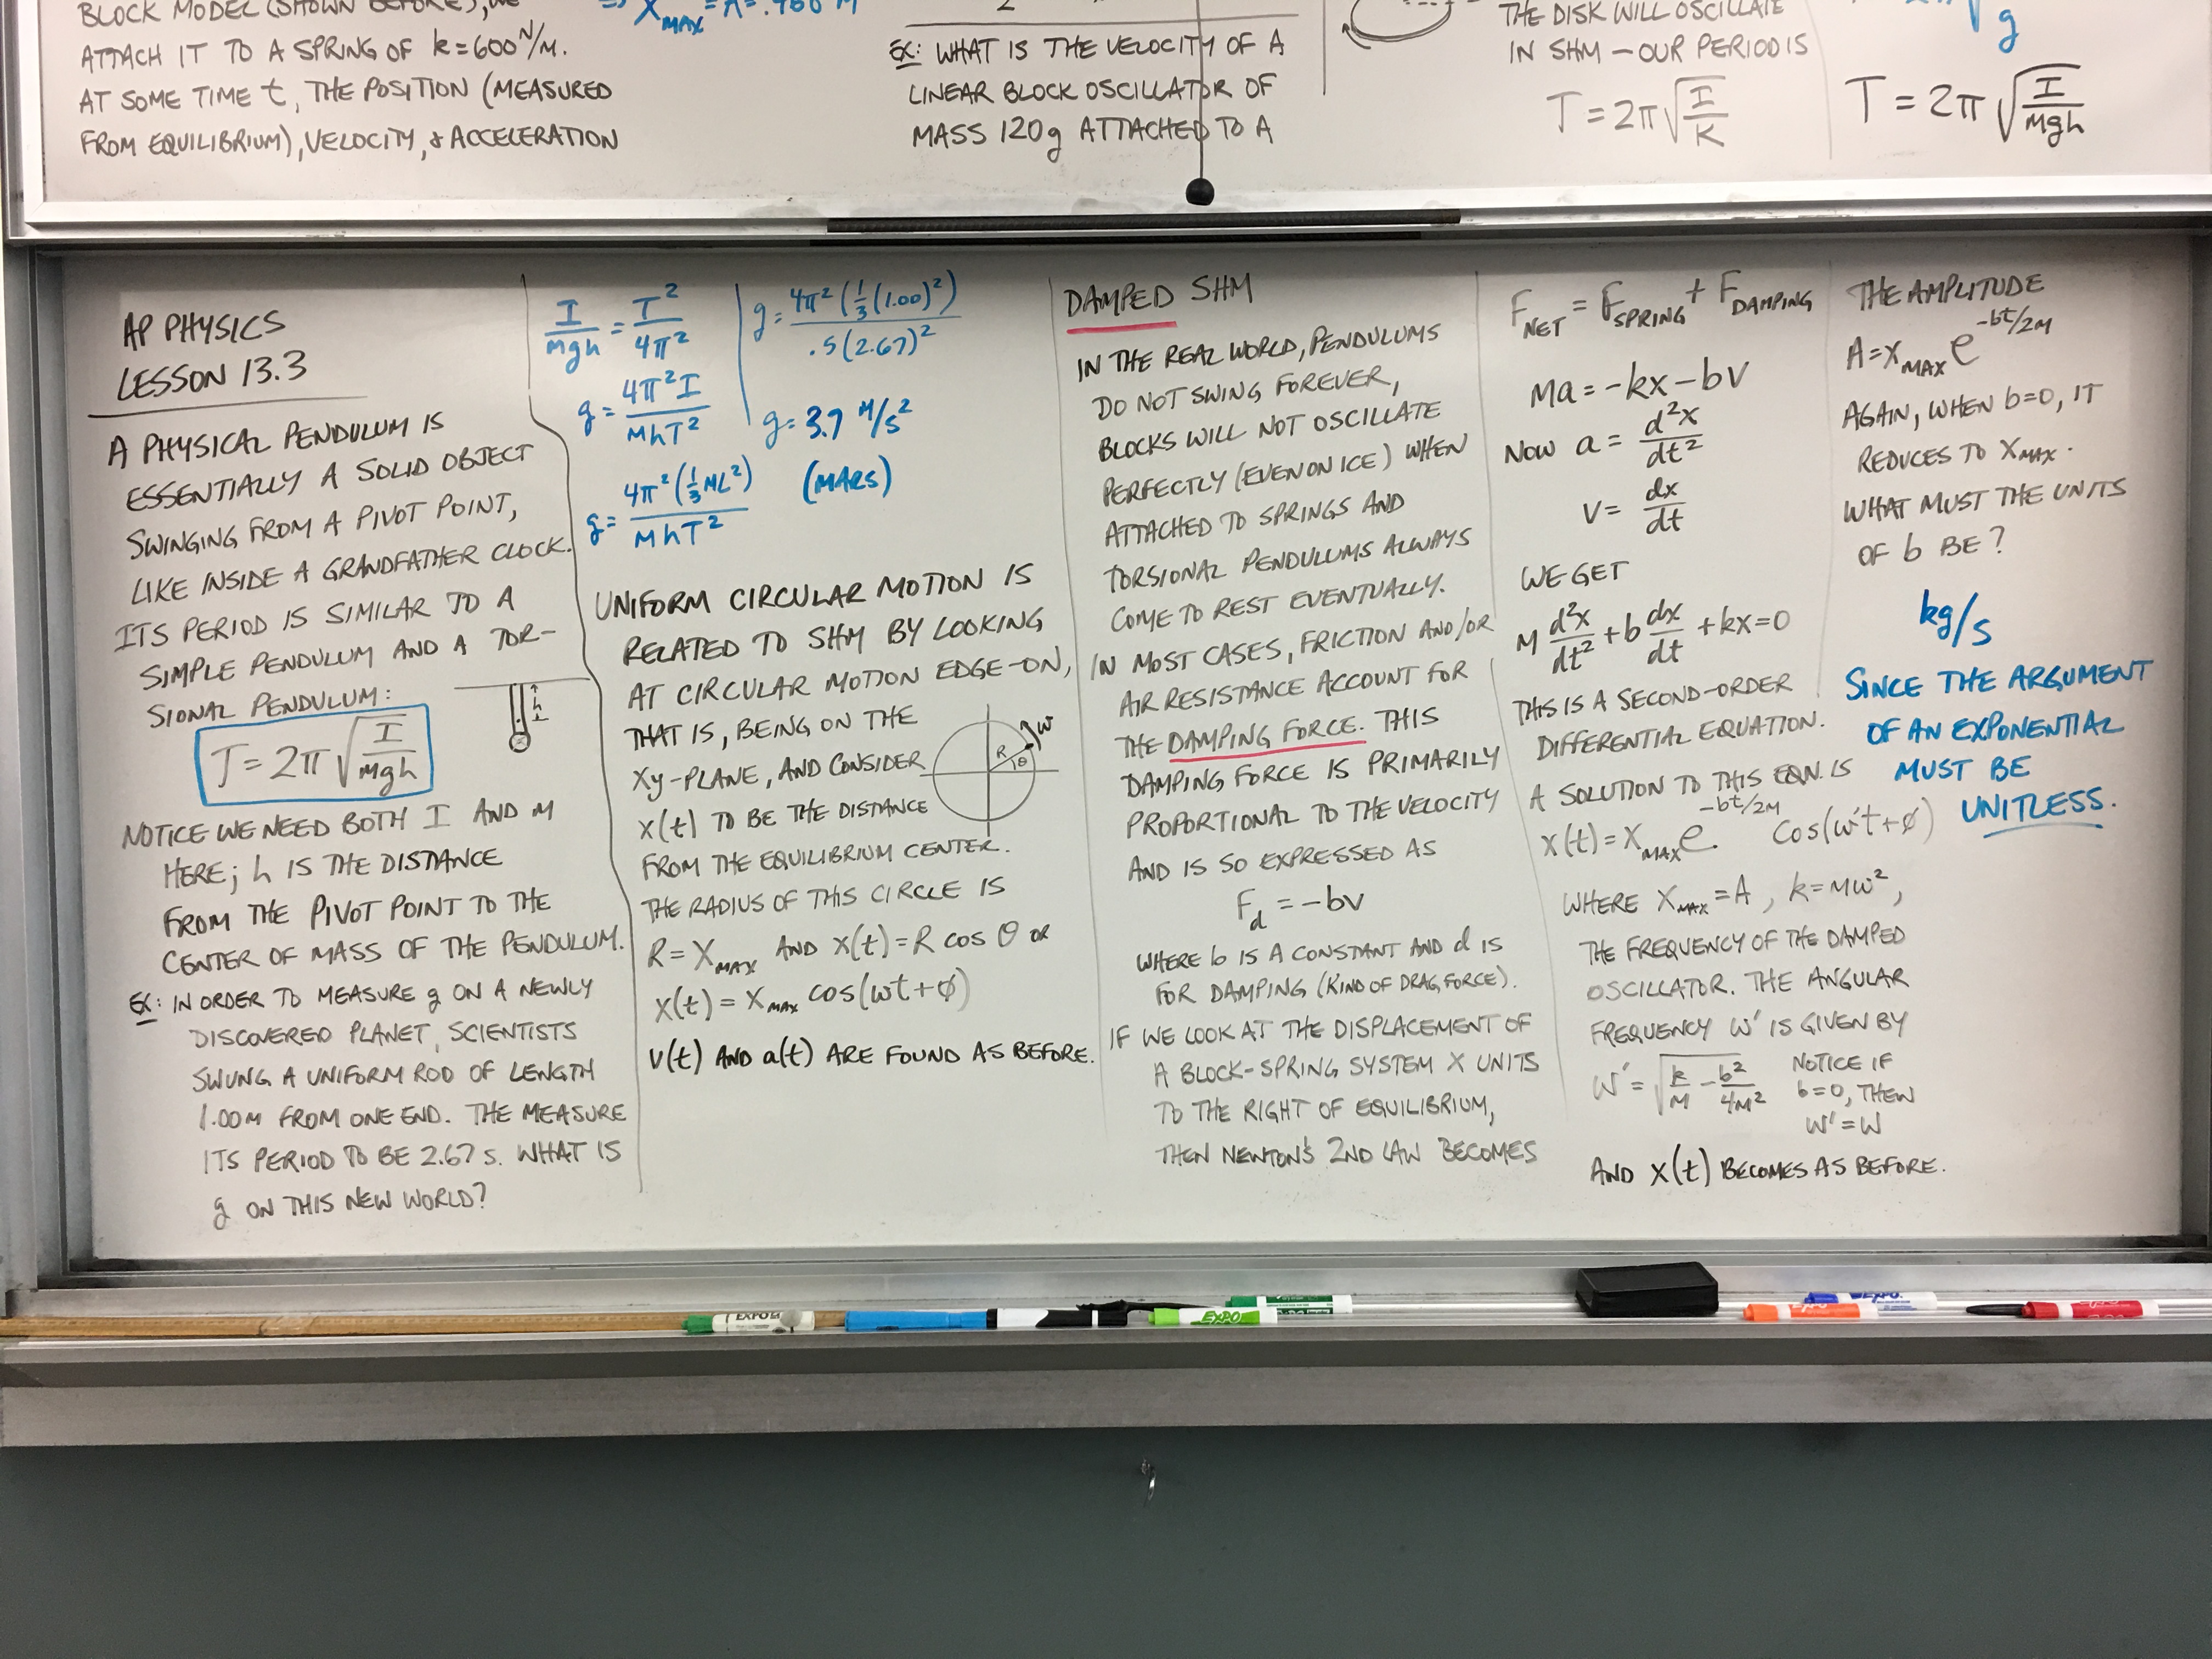 BLOCK MODEL (SHOWN BEFORE), WE
ATTACH IT TO A SPRING OF k=600 N/M.
AT SOME TIME t, THE POSITION (MEASURED
FROM EQUILIBRIUM), VELOCITY, & ACCELERATION
⇒ X_MAX = A = .480 M
EX: WHAT IS THE VELOCITY OF A
LINEAR BLOCK OSCILLATOR OF
MASS 120g ATTACHED TO A
THE DISK WILL OSCILLATE
IN SHM – OUR PERIOD IS
T = 2π√(I/K)
g
T = 2π√(I/Mgh)
AP PHYSICS
LESSON 13.3
A PHYSICAL PENDULUM IS
ESSENTIALLY A SOLID OBJECT
SWINGING FROM A PIVOT POINT,
LIKE INSIDE A GRANDFATHER CLOCK.
ITS PERIOD IS SIMILAR TO A
SIMPLE PENDULUM AND A TOR-
SIONAL PENDULUM:
h
T = 2π√(I/Mgh)
NOTICE WE NEED BOTH I AND M
HERE; h IS THE DISTANCE
FROM THE PIVOT POINT TO THE
CENTER OF MASS OF THE PENDULUM.
EX: IN ORDER TO MEASURE g ON A NEWLY
DISCOVERED PLANET, SCIENTISTS
SWUNG A UNIFORM ROD OF LENGTH
1.00M FROM ONE END. THE MEASURE
ITS PERIOD TO BE 2.67 s. WHAT IS
g ON THIS NEW WORLD?
I/Mgh = T²/4π²
g = 4π²I/MhT²
g = 4π²(⅓ML²)/MhT²
g = 4π²(⅓(1.00)²)/.5(2.67)²
g = 3.7 M/S²
(MARS)
UNIFORM CIRCULAR MOTION IS
RELATED TO SHM BY LOOKING
AT CIRCULAR MOTION EDGE-ON,
THAT IS, BEING ON THE
XY-PLANE, AND CONSIDER
X(t) TO BE THE DISTANCE
FROM THE EQUILIBRIUM CENTER.
R θ ω
THE RADIUS OF THIS CIRCLE IS
R = X_MAX AND X(t) = R COS θ OR
X(t) = X_MAX COS(ωt+φ)
V(t) AND a(t) ARE FOUND AS BEFORE.
DAMPED SHM
IN THE REAL WORLD, PENDULUMS
DO NOT SWING FOREVER,
BLOCKS WILL NOT OSCILLATE
PERFECTLY (EVEN ON ICE) WHEN
ATTACHED TO SPRINGS AND
TORSIONAL PENDULUMS ALWAYS
COME TO REST EVENTUALLY.
IN MOST CASES, FRICTION AND/OR
AIR RESISTANCE ACCOUNT FOR
THE DAMPING FORCE. THIS
DAMPING FORCE IS PRIMARILY
PROPORTIONAL TO THE VELOCITY
AND IS SO EXPRESSED AS
F_d = -bv
WHERE b IS A CONSTANT AND d IS
FOR DAMPING (KIND OF DRAG FORCE).
IF WE LOOK AT THE DISPLACEMENT OF
A BLOCK-SPRING SYSTEM X UNITS
TO THE RIGHT OF EQUILIBRIUM,
THEN NEWTON'S 2ND LAW BECOMES
F_NET = F_SPRING + F_DAMPING
Ma = -kx - bv
NOW a = d²x/dt²
v = dx/dt
WE GET
M d²x/dt² + b dx/dt + kx = 0
THIS IS A SECOND-ORDER
DIFFERENTIAL EQUATION.
A SOLUTION TO THIS EQN. IS
X(t) = X_MAX e^(-bt/2M) COS(ω't+φ)
WHERE X_MAX = A, k = Mω²,
THE FREQUENCY OF THE DAMPED
OSCILLATOR. THE ANGULAR
FREQUENCY ω' IS GIVEN BY
ω' = √(k/M - b²/4M²)
NOTICE IF
b=0, THEN
ω' = ω
AND X(t) BECOMES AS BEFORE.
THE AMPLITUDE
A = X_MAX e^(-bt/2M)
AGAIN, WHEN b=0, IT
REDUCES TO X_MAX.
WHAT MUST THE UNITS
OF b BE?
kg/s
SINCE THE ARGUMENT
OF AN EXPONENTIAL
MUST BE
UNITLESS.
EXPO
EXPO
EXPO
EXPO